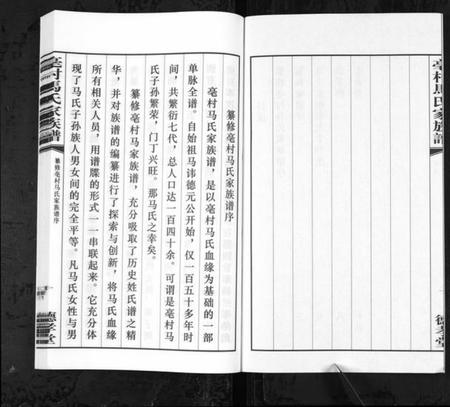 亳村馬氏家族譜
德孝堂
纂修亳村马氏家族谱序
亳村马氏家族谱，是以亳村马氏血缘为基础的一部
单脉全谱。自始祖马讳德元公开始，仅一百五十多年时
间，共繁衍七代，总人口达一百四十余。可谓是亳村马
氏子孙繁荣，门丁兴旺。那马氏之幸矣。
纂修亳村马家族谱，充分吸取了历史姓氏谱之精
华，并对族谱的编纂进行了探索与创新，将马氏血缘
所有相关人员，用谱牒的形式一一串联起来。它充分体
现了马氏子孙族人男女间的完全平等。凡马氏女性与男
亳村馬氏家族譜
纂修亳村马氏家族谱序
德孝堂